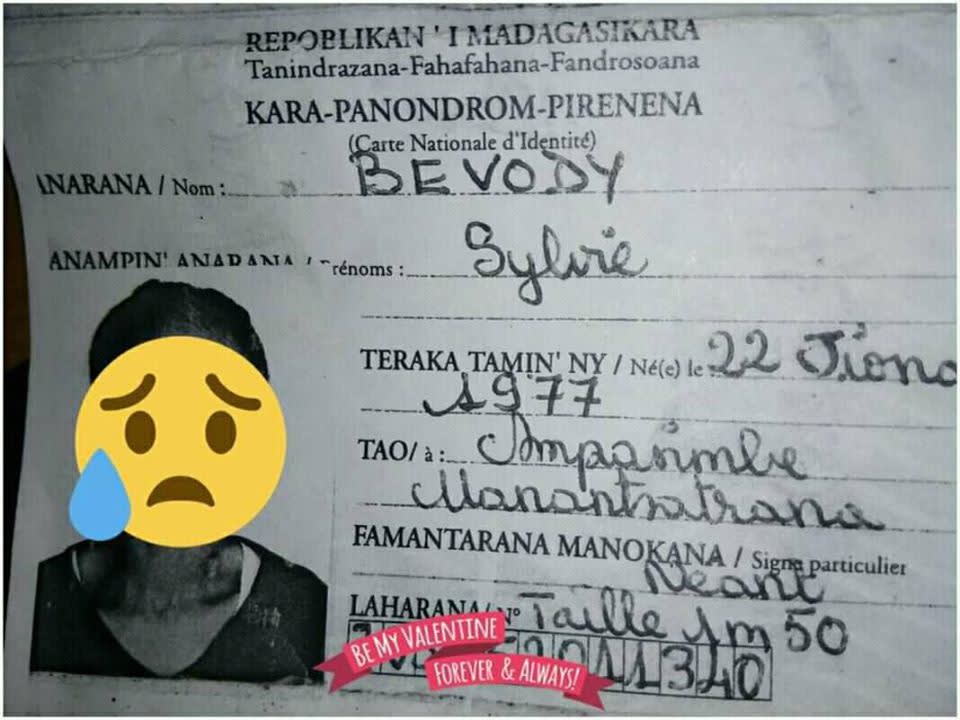 REPOBLIKAN' I MADAGASIKARA
Tanindrazana-Fahafahana-Fandrosoana
KARA-PANONDROM-PIRENENA
(Carte Nationale d'Identité)
ANARANA / Nom : BEVODY
ANAMPIN' ANARANA / Prénoms : Sylvie
TERAKA TAMIN' NY / Né(e) le 22 Jiona
1977
TAO / à : Ampasimbe
Manantsatrana
FAMANTARANA MANOKANA / Signe particulier
Néant
LAHARANA / N° Taille 1m 50
11340
BE MY VALENTINE
FOREVER & ALWAYS!